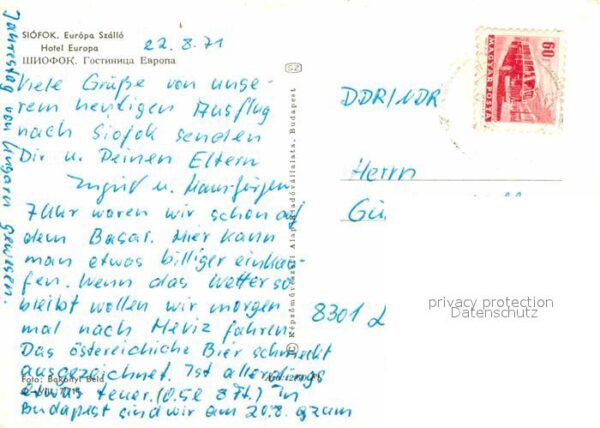 SIÓFOK. Európa Szálló
Hotel Europa
ШИОФОК. Гостиница Европа
22.8.71
Viele Grüße von unse-
rem heutigen Ausflug
nach Siofok senden
Dir u. Deinen Eltern
Ingrid u. Hansjürgen
7 Uhr waren wir schon auf
dem Basar. Hier kann
man etwas billiger einkau-
fen. Wenn das Wetter so
bleibt wollen wir morgen
mal nach Heviz fahren.
Das österreichiche Bier schmeckt
ausgezeichnet. Ist allerdings
etwas teuer. (0,5l 8 Ft.) In
Budapest sind wir am 20.8. zum
Jahrestag von Ungarn gewesen.
Foto: Bakonyi Béla
SZ
Képzőművészeti Alap Kiadóvállalata, Budapest
60
MAGYAR POSTA
DDR/NDR
Herrn
8301
privacy protection
Datenschutz